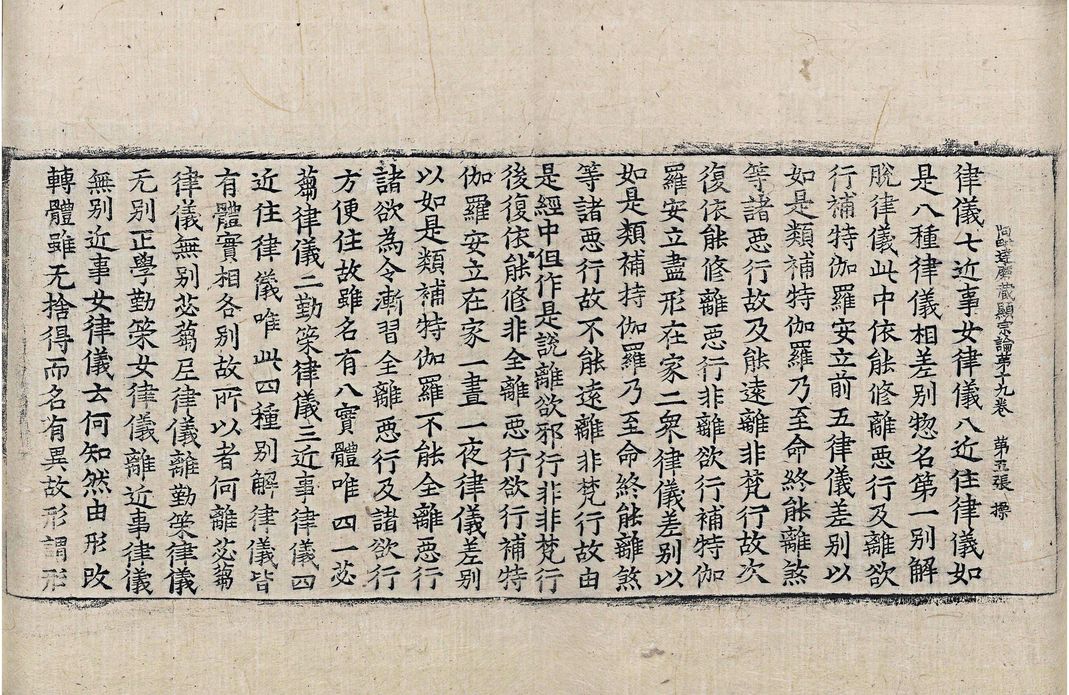 阿毗達磨藏顯宗論第十九卷 第五張 摽
律儀七近事女律儀八近住律儀如
是八種律儀相差別惣名第一別解
脫律儀此中依能修離惡行及離欲
行補特伽羅安立前五律儀差別以
如是類補特伽羅乃至命終能離煞
等諸惡行故及能遠離非梵行故次
復依能修離惡行非離欲行補特伽
羅安立盡形在家二衆律儀差別以
如是類補特伽羅乃至命終能離煞
等諸惡行故不能遠離非梵行故由
是經中但作是說離欲邪行非非梵行
後復依能修非全離惡行欲行補特
伽羅安立在家一晝一夜律儀差別
以如是類補特伽羅不能全離惡行
諸欲為令漸習全離惡行及諸欲行
方便住故雖名有八實體唯四一苾
蒭律儀二勤策律儀三近事律儀四
近住律儀唯此四種別解律儀皆
有體實相各別故所以者何離苾蒭
律儀無別苾蒭尼律儀離勤策律儀
无別正學勤策女律儀離近事律儀
無別近事女律儀云何知然由形改
轉體雖无捨得而名有異故形謂形